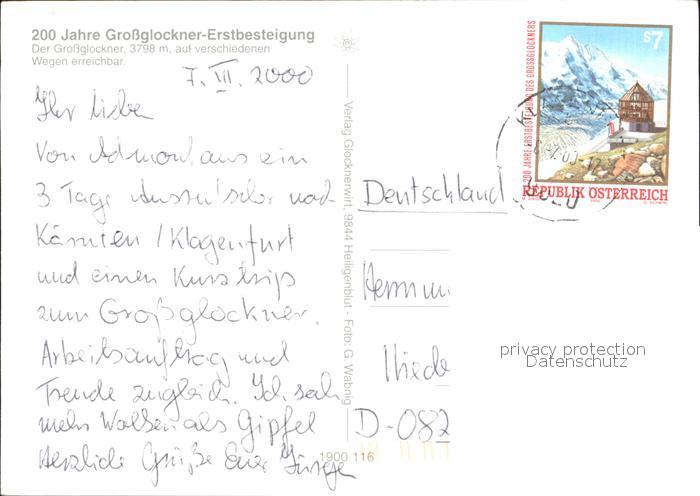 200 Jahre Großglockner-Erstbesteigung
Der Großglockner, 3798 m, auf verschiedenen
Wegen erreichbar.
7. VII. 2000
Ihr Lieben
Von Admont aus ein
3 Tage Ausrutscher nach
Kärnten / Klagenfurt
und einen Kurztrip
zum Großglockner.
Arbeitsauftrag und
Freude zugleich. Ich sah
mehr Wolken als Gipfel
Herzliche Grüße Euer Jürgen
Verlag Glocknerwirt, 9844 Heiligenblut - Foto: G. Wabnig
1900 116
S7
200 JAHRE ERSTBESTEIGUNG DES GROSSGLOCKNERS
REPUBLIK ÖSTERREICH
Deutschland
Niede
D-082
privacy protection
Datenschutz